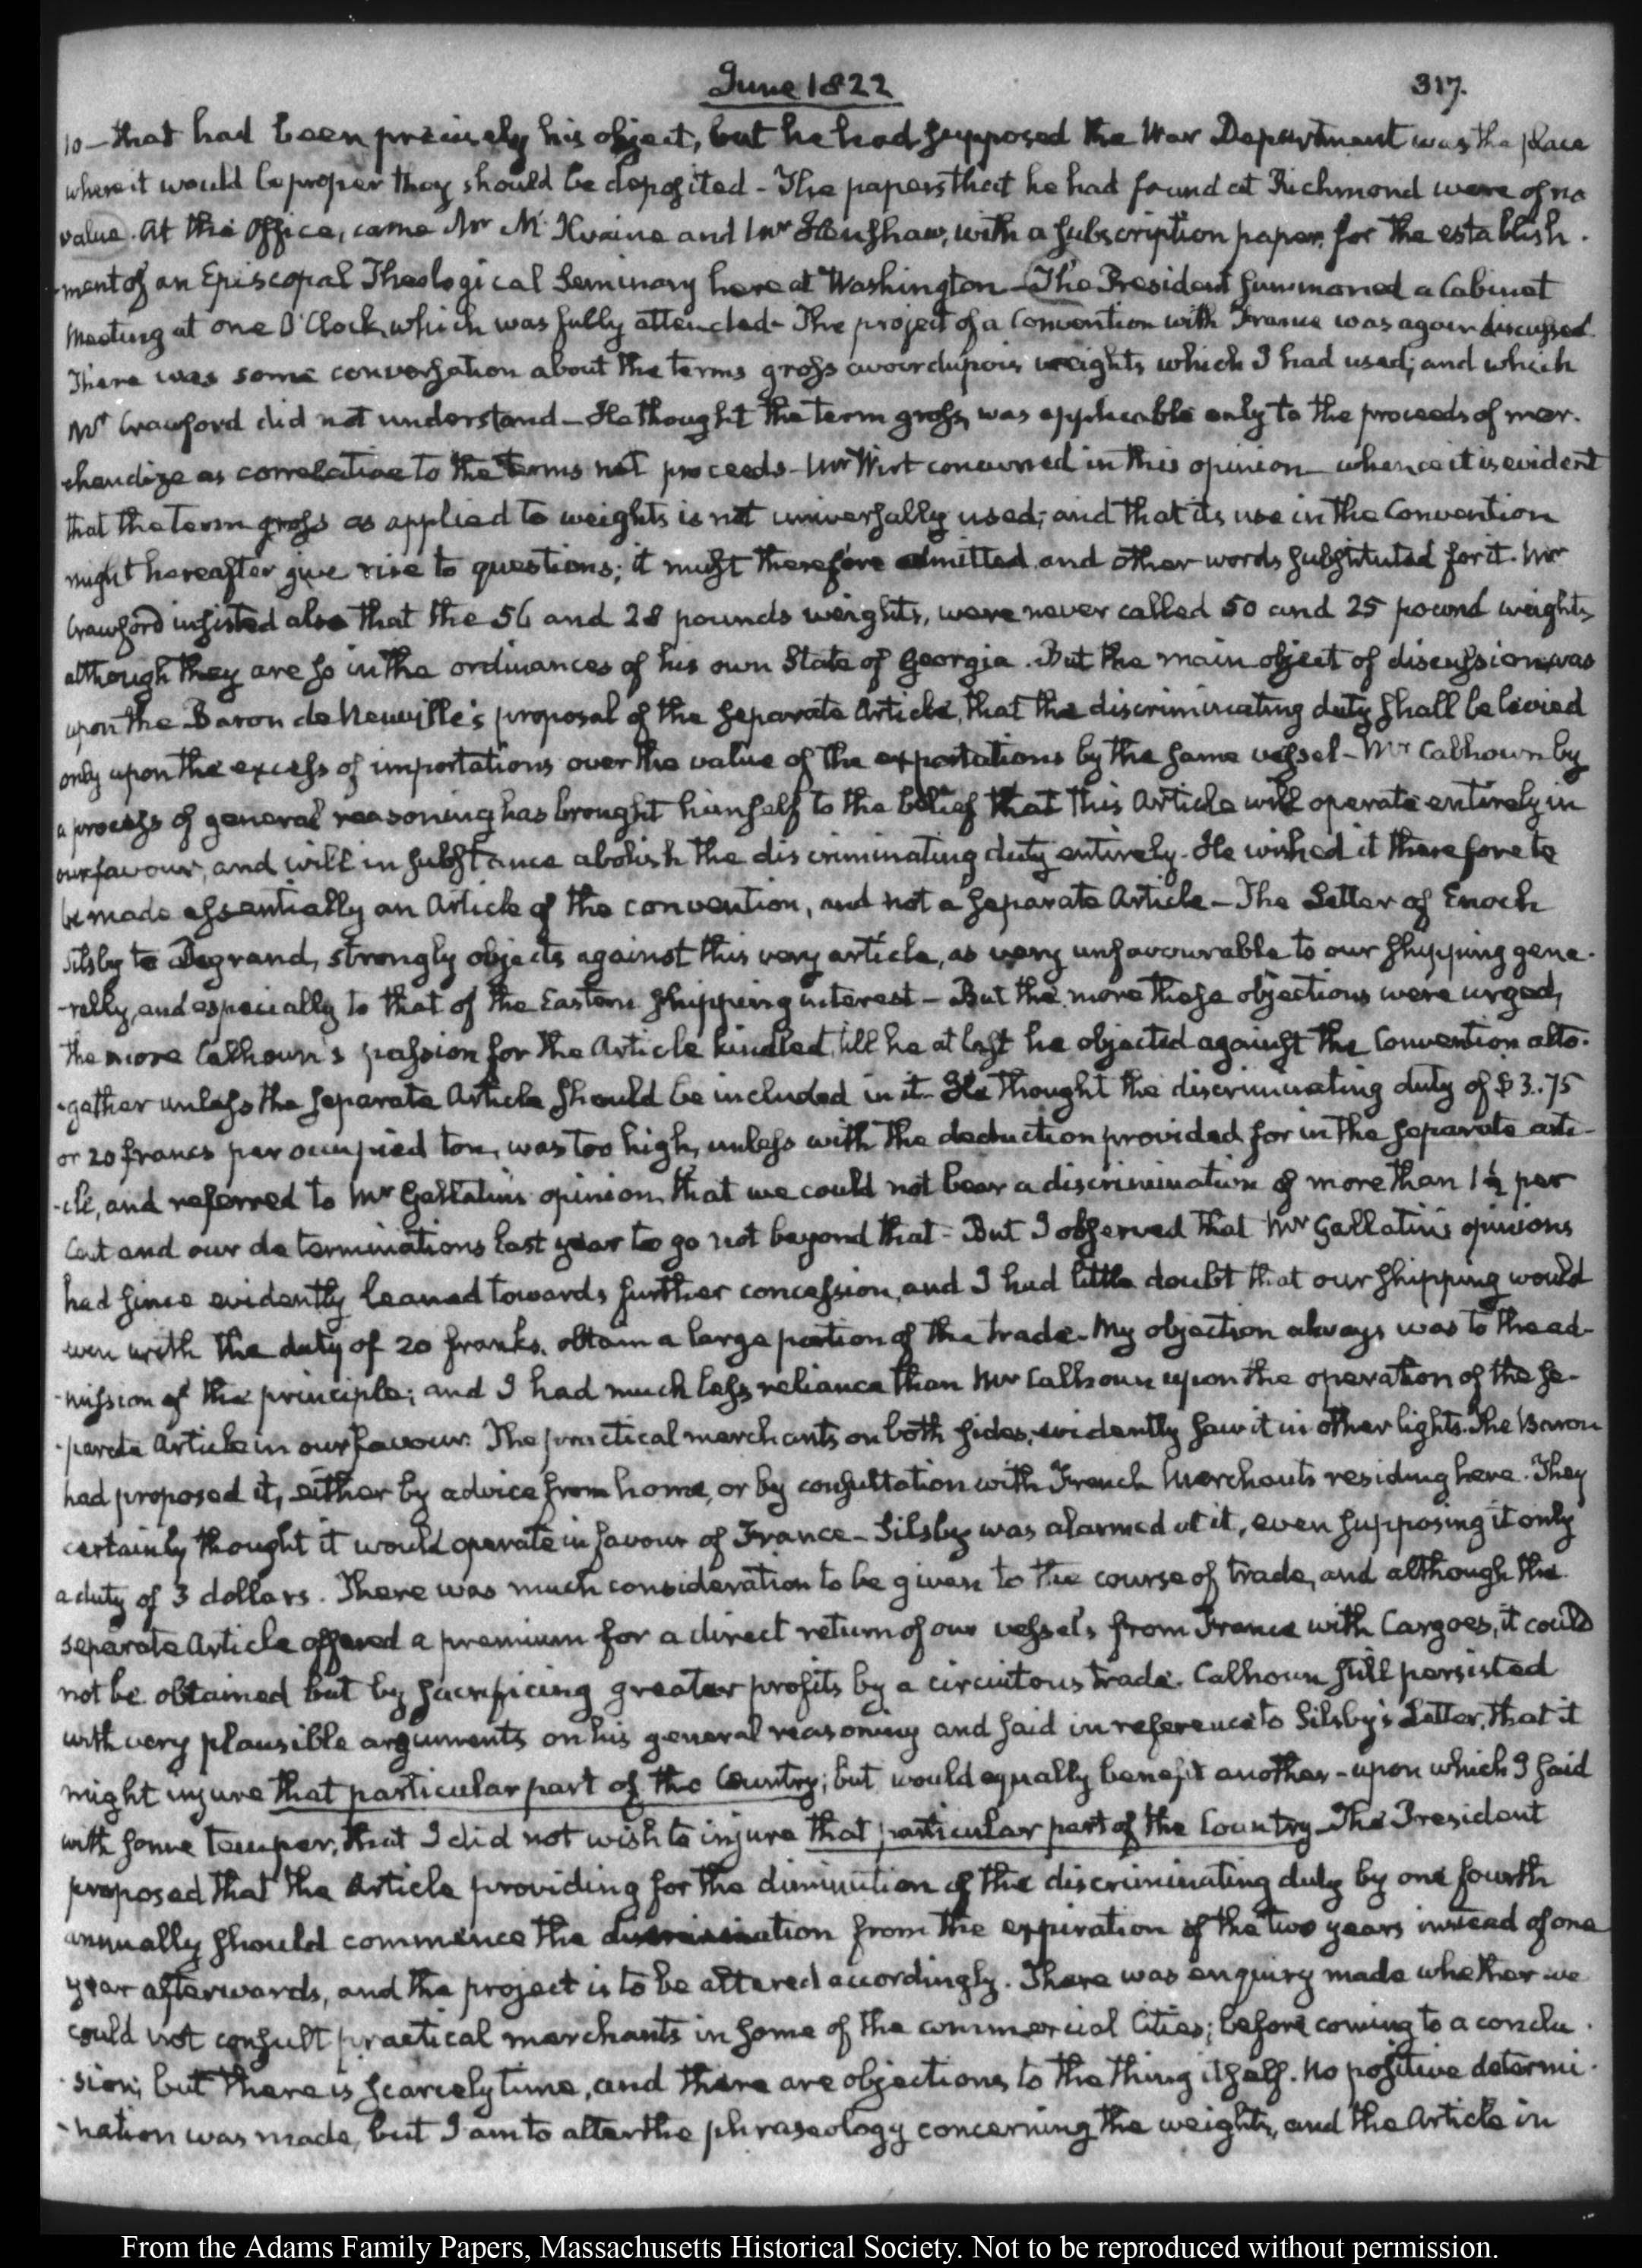 June 1822
317.
10 — that had been precisely his object, but he had supposed the War Department was the place
where it would be proper they should be deposited - The papers that he had found at Richmond were of no
value. At the Office, came Mr and Mr Henshaw, with a subscription paper for the establish-
-ment of an Episcopal Theological Seminary here at Washington - The President summoned a Cabinet
Meeting at one O'Clock, which was fully attended - The project of a Convention with France was again discussed.
There was some conversation about the terms gross avoirdupois weights which I had used; and which
Mr Crawford did not understand - He thought the term gross, was applicable only to the proceeds of mer-
chandize as correlative to the terms net proceeds - Mr Wirt concurred in this opinion - whence it is evident
that the term gross as applied to weights is not universally used; and that its use in the Convention
might hereafter give rise to questions; it must therefore omitted and other words substituted for it. Mr
Crawford insisted also that the 56 and 28 pounds weights, were never called 50 and 25 pound weights,
although they are so in the ordinances of his own State of Georgia. But the main object of discussion was
upon the Baron de Neuville's proposal of the separate Article, that the discriminating duty shall be levied
only upon the excess of importations over the value of the exportations by the same vessel - Mr Calhoun by
a process of general reasoning has brought himself to the belief that this Article will operate entirely in
our favour, and will in substance abolish the discriminating duty entirely - He wished it therefore to
be made essentially an Article of the convention, and not a separate Article - The Letter of Enoch
Silsby to Degrand, strongly objects against this very article, as very unfavourable to our shipping gene-
-rally, and especially to that of the Eastern shipping interest - But the more these objections were urged,
the more Calhoun's passion for the Article kindled, till he at last he objected against the Convention alto-
-gether unless the separate Article should be included in it - He thought the discriminating duty of $3.75
or 20 francs per occupied ton, was too high, unless with the deduction provided for in the separate arti-
-cle, and referred to Mr Gallatin's opinion, that we could not bear a discrimination of more than 1½ per
Cent and our determinations last year to go not beyond that - But I observed that Mr Gallatin's opinions
had since evidently leaned towards further concession, and I had little doubt that our shipping would
even with the duty of 20 franks, obtain a large portion of the trade - My objection always was to the ad-
-mission of the principle; and I had much less reliance than Mr Calhoun upon the operation of the se-
-parate Article in our favour. The practical merchants on both sides, evidently saw it in other lights. The Baron
had proposed it, either by advice from home, or by consultation with French Merchants residing here. They
certainly thought it would operate in favour of France - Silsby was alarmed at it, even supposing it only
a duty of 3 dollars. There was much consideration to be given to the course of trade, and although the
separate Article offered a premium for a direct return of our vessels from France with Cargoes, it could
not be obtained but by sacrificing greater profits by a circuitous trade. Calhoun still persisted
with very plausible arguments on his general reasoning and said in reference to Silsby's Letter, that it
might injure that particular part of the Country; but would equally benefit another - upon which I said
with some temper, that I did not wish to injure that particular part of the Country - The President
proposed that the Article providing for the diminution of the discriminating duty by one fourth
annually should commence the from the expiration of the two years instead of one
year afterwards, and the project is to be altered accordingly. There was enquiry made whether we
could not consult practical merchants in some of the commercial Cities; before coming to a conclu-
-sion; but there is scarcely time, and there are objections to the thing itself. No positive determi-
-nation was made, but I am to alter the phraseology concerning the weights, and the Article in
From the Adams Family Papers, Massachusetts Historical Society. Not to be reproduced without permission.